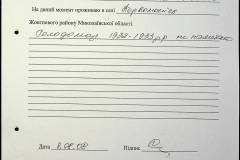 На даний момент проживаю в селі Первомайськ
Жовтневого району Миколаївської області.
Голодомор 1932-1933 рр не
Дата 8.08.08 Підпис